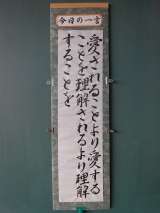 今日の一言
愛されることより愛する
ことを理解されるより理解
することを